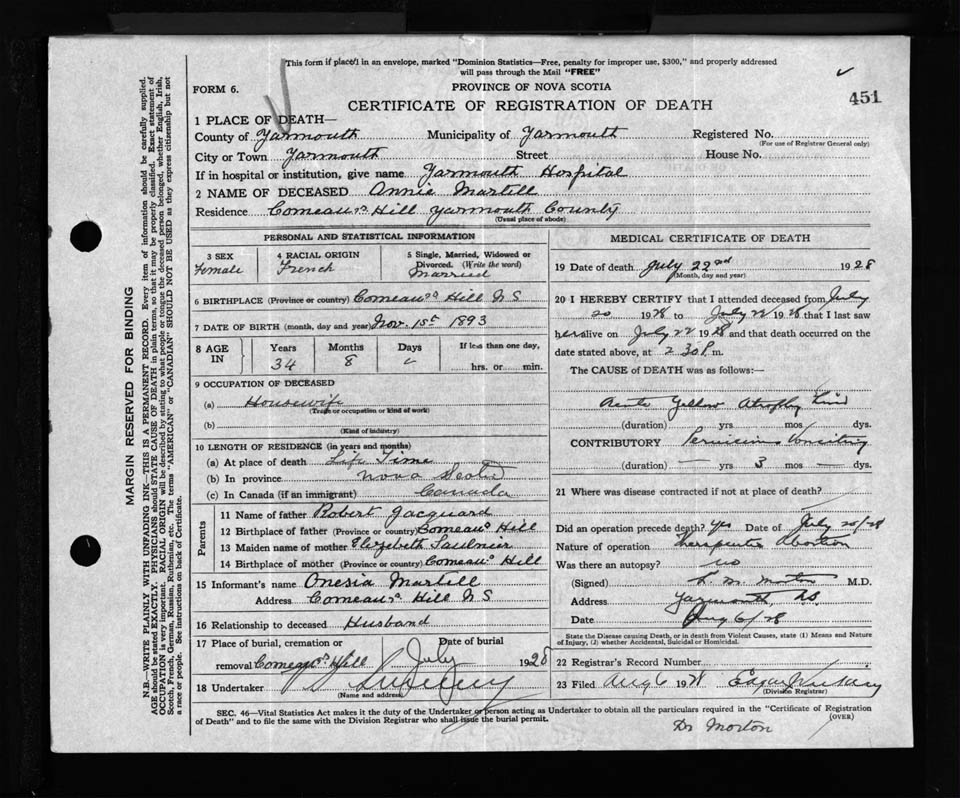 This form if placed in an envelope, marked "Dominion Statistics—Free, penalty for improper use, $300," and properly addressed
will pass through the Mail "FREE"
FORM 6.
PROVINCE OF NOVA SCOTIA
451
CERTIFICATE OF REGISTRATION OF DEATH
1 PLACE OF DEATH—
County of Yarmouth Municipality of Yarmouth Registered No.
(For use of Registrar General only)
City or Town Yarmouth Street House No.
If in hospital or institution, give name Yarmouth Hospital
2 NAME OF DECEASED Annie Martell
Residence Comeau's Hill Yarmouth County
(Usual place of abode)
MARGIN RESERVED FOR BINDING
N.B.—WRITE PLAINLY WITH UNFADING INK—THIS IS A PERMANENT RECORD. Every item of information should be carefully supplied.
AGE should be stated EXACTLY. PHYSICIANS should STATE CAUSE OF DEATH in plain terms, so that it may be properly classified. Exact statement of
OCCUPATION is very important. RACIAL ORIGIN will be described by stating to what people or tongue the deceased person belonged, whether English, Irish,
Scotch, French, German, Russian, Ruthenian, etc. The terms "AMERICAN" or "CANADIAN" SHOULD NOT BE USED as they express citizenship but not
a race or people. See instructions on back of Certificate.
PERSONAL AND STATISTICAL INFORMATION
3 SEX
Female
4 RACIAL ORIGIN
French
5 Single, Married, Widowed or
Divorced. (Write the word)
Married
6 BIRTHPLACE (Province or country) Comeau's Hill N S
7 DATE OF BIRTH (month, day and year) Nov. 1st 1893
8 AGE IN
Years Months Days If less than one day,
34 8 hrs. or min.
9 OCCUPATION OF DECEASED
(a) Housewife
(Trade or occupation or kind of work)
(b)
(Kind of industry)
10 LENGTH OF RESIDENCE (in years and months)
(a) At place of death Life Time
(b) In province Nova Scotia
(c) In Canada (if an immigrant) Canada
Parents
11 Name of father Robert Jacquard
12 Birthplace of father (Province or country) Comeau's Hill
13 Maiden name of mother Elizebeth Saulnier
14 Birthplace of mother (Province or country) Comeau's Hill
15 Informant's name Onesia Martell
Address Comeau's Hill N S
16 Relationship to deceased Husband
17 Place of burial, cremation or Date of burial
removal Comeau's Hill July 1928
18 Undertaker
(Name and address)
MEDICAL CERTIFICATE OF DEATH
19 Date of death July 22nd 1928
(Month, day and year)
20 I HEREBY CERTIFY that I attended deceased from July
20 1928 to July 22 1928 that I last saw
her alive on July 22 1928 and that death occurred on
date stated above, at 2 30 P. m.
The CAUSE of DEATH was as follows:—
Acute Yellow Atrophy Liver
(duration) yrs mos dys.
CONTRIBUTORY Pernicious Vomiting
(duration) — yrs 3 mos — dys.
21 Where was disease contracted if not at place of death?
Did an operation precede death? Yes Date of July 20/28
Nature of operation Therapeutic Abortion
Was there an autopsy? no
(Signed) Morton M.D.
Address Yarmouth, N.S.
Date Aug 6/28
State the Disease causing Death, or in death from Violent Causes, state (1) Means and Nature
of Injury, (2) whether Accidental, Suicidal or Homicidal.
22 Registrar's Record Number
23 Filed Aug 6 1928
(Division Registrar)
SEC. 46—Vital Statistics Act makes it the duty of the Undertaker or person acting as Undertaker to obtain all the particulars required in the "Certificate of Registration
of Death" and to file the same with the Division Registrar who shall issue the burial permit.
(OVER)
Dr Morton